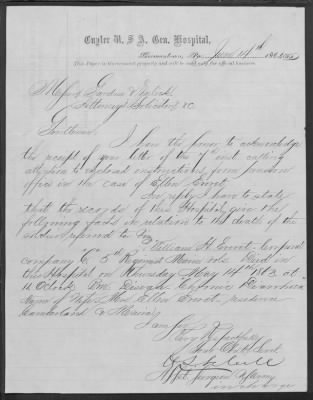 Cuyler U. S. A. Gen. Hospital,
Germantown, Pa., June 14th 186
This Paper is Government property and will be used only for official business.
Messrs Gardner &
Attorneys Solicitors &c
Gentlemen,
I have the honor to acknowledge
the receipt of your letter of the 7th inst. calling
attention to instructions from pension
office in the case of Ellen
In reply I have to state
that the records of this Hospital give the
following facts in relation to the death of the
soldier referred to viz
William H. Corporal
company C 5th Regiment Maine vols. Died in
this Hospital on Thursday May 14th 1863 at
11 O'clock P.M. Disease Chronic Diarrhoea
Name of Wife Mrs Ellen residence
Cumberland Co Maine
I am Sirs
Very Respectfully
Your Obdt Servt
Asst. Surgeon U.S. Army
in charge